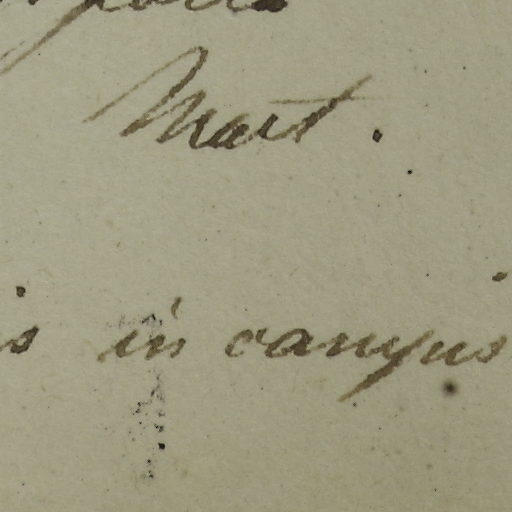 Mart.
is in campis